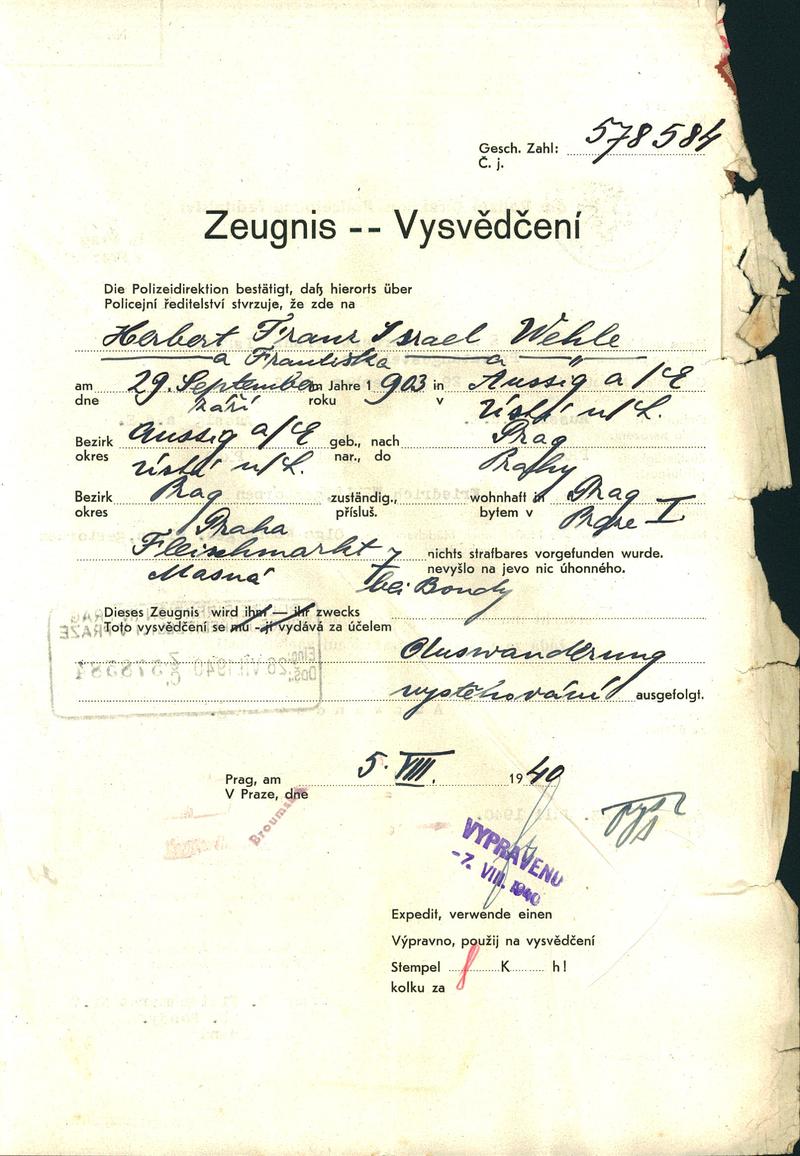 Gesch. Zahl: 578584
Č. j.
Zeugnis -- Vysvědčení
Die Polizeidirektion bestätigt, daß hierorts über
Policejní ředitelství stvrzuje, že zde na
Herbert Franz Israel Wehle
a Františka a "
am 29. September im Jahre 1903 in Aussig a/E
dne září roku v Ústí n/L.
Bezirk Aussig a/E geb., nach Prag
okres Ústí n/L. nar., do Prahy
Bezirk Prag zuständig., wohnhaft in Prag I
okres Praha přísluš. bytem v Praze
Fleischmarkt 7 nichts strafbares vorgefunden wurde.
Masná nevyšlo na jevo nic úhonného.
bei Bondy
Dieses Zeugnis wird ihm — ihr zwecks
Toto vysvědčení se mu - jí vydává za účelem
Auswanderung
vystěhování ausgefolgt.
Prag, am 5. VIII. 1940
V Praze, dne
Broumana
VYPRAVENO
-7. VIII. 1940
Expedit, verwende einen
Výpravno, použij na vysvědčení
Stempel K h!
kolku za